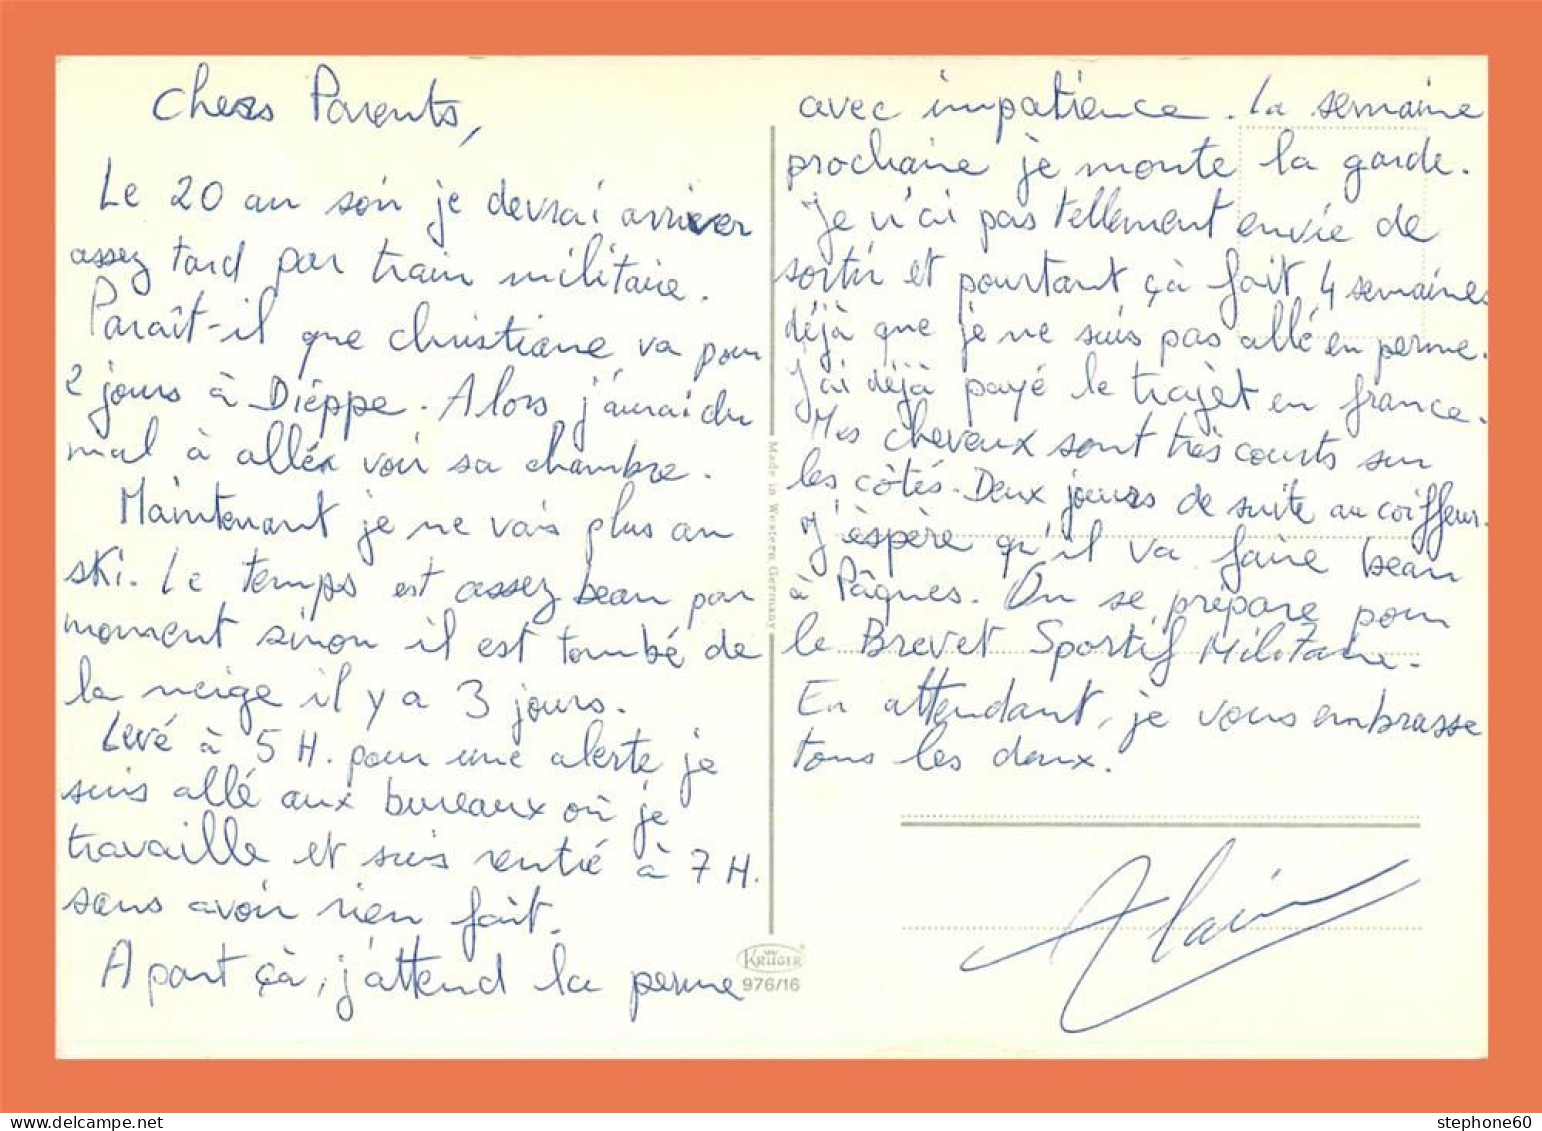 Chers Parents,
Le 20 au soir je devrai arriver
assez tard par train militaire.
Paraît-il que christiane va pour
2 jours à Diéppe. Alors j'aurai du
mal à allér voir sa chambre.
Maintenant je ne vais plus au
ski. Le temps est assez beau par
moment sinon il est tombé de
la neige il y a 3 jours.
Levé à 5 H. pour une alerte je
suis allé aux bureaux où je
travaille et suis rentré à 7 H.
sans avoir rien fait.
A part çà, j'attend la perme
avec impatience. La semaine
prochaine je monte la garde.
Je n'ai pas tellement envie de
sortir et pourtant çà fait 4 semaines
déjà que je ne suis pas allé en perme.
J'ai déjà payé le trajet en france.
Mes cheveux sont très courts sur
les côtés. Deux jours de suite au coiffeur.
J'èspère qu'il va faire beau
à Pâques. On se prépare pour
le Brevet Sportif Militaire.
En attendant, je vous embrasse
tous les deux.
Alain
Made in Western Germany
KRÜGER
976/16
stephone60